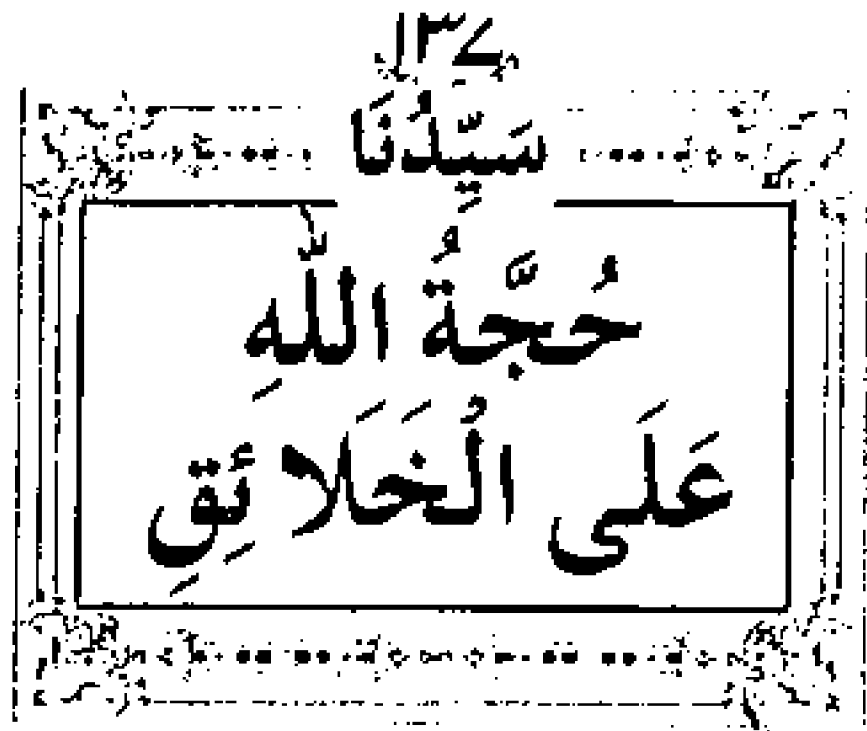 ۱۳۷
سَيِّدُنَا
حُجَّةُ اللّٰهِ
عَلَى الْخَلَائِقِ